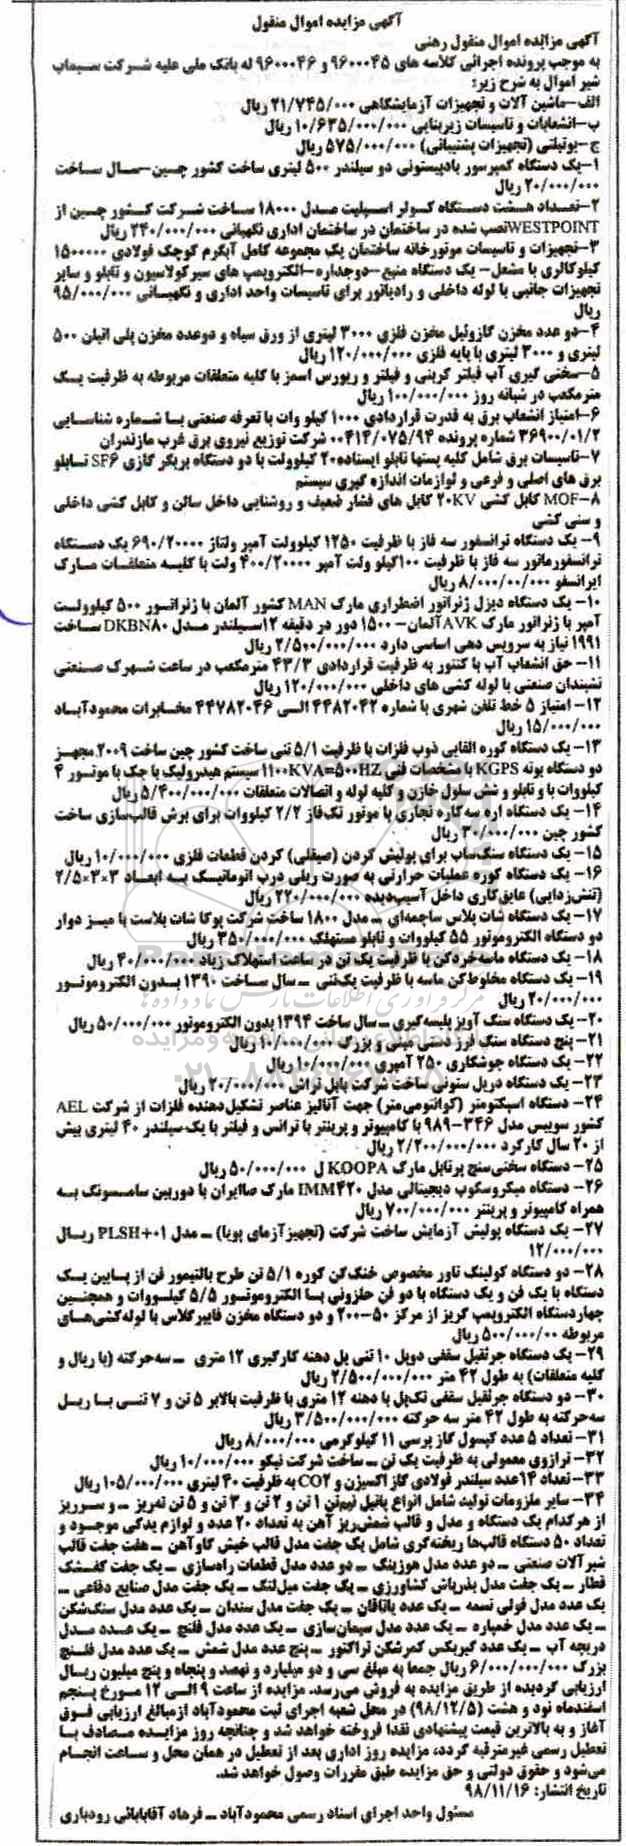 آگهی مزایده اموال منقول
آگهی مزایده اموال منقول رهنی
به موجب پرونده اجرائی کلاسه های ۹۶۰۰۰۴۵ و ۹۶۰۰۰۴۶ له بانک ملی علیه شرکت سیماب
شیر اموال به شرح زیر:
الف-ماشین آلات و تجهیزات آزمایشگاهی ۲۱/۷۴۵/۰۰۰ ریال
ب-انشعابات و تاسیسات زیربنایی ۱۰/۶۳۵/۰۰۰/۰۰۰ ریال
ج-یوتیلتی (تجهیزات پشتیبانی) ۵۷۵/۰۰۰/۰۰۰ ریال
۱-یک دستگاه کمپرسور بادپیستونی دو سیلندر ۵۰۰ لیتری ساخت کشور چین-سال ساخت
۲۰/۰۰۰/۰۰۰ ریال
۲-تعداد هشت دستگاه کولر اسپلیت مدل ۱۸۰۰۰ ساخت شرکت کشور چین از
WESTPOINTنصب شده در ساختمان در ساختمان اداری نگهبانی ۲۴۰/۰۰۰/۰۰۰ ریال
۳-تجهیزات و تاسیسات موتورخانه ساختمان یک مجموعه کامل آبگرم کوچک فولادی ۱۵۰۰۰۰۰
کیلوکالری با مشعل- یک دستگاه منبع-دوجداره-الکتروپمپ های سیرکولاسیون و تابلو و سایر
تجهیزات جانبی با لوله داخلی و رادیاتور برای تاسیسات واحد اداری و نگهبانی ۹۵/۰۰۰/۰۰۰
ریال
۴-دو عدد مخزن گازوئیل مخزن فلزی ۳۰۰۰ لیتری از ورق سیاه و دوعدد مخزن پلی اتیلن ۵۰۰
لیتری و ۳۰۰۰ لیتری با پایه فلزی ۱۲۰/۰۰۰/۰۰۰ ریال
۵-سختی گیری آب فیلتر کربنی و فیلتر و ریورس اسمز با کلیه متعلقات مربوطه به ظرفیت یک
مترمکعب در شبانه روز ۱۰۰/۰۰۰/۰۰۰ ریال
۶-امتیاز انشعاب برق به قدرت قراردادی ۱۰۰۰ کیلو وات با تعرفه صنعتی با شماره شناسایی
۳۶۹۰۰/۰۱/۲ شماره پرونده ۰۰۴۱۴/۰۷۵/۹۴ شرکت توزیع نیروی برق غرب مازندران
۷-تاسیسات برق شامل کلیه پستها تابلو ایستاده۲۰ کیلوولت با دو دستگاه بریکر گازی SF۶ تابلو
برق های اصلی و فرعی و لوازمات اندازه گیری سیستم
۸-MOF کابل کشی ۲۰KV کابل های فشار ضعیف و روشنایی داخل سالن و کابل کشی داخلی
و سنی کشی
۹- یک دستگاه ترانسفور سه فاز با ظرفیت ۱۲۵۰ کیلوولت آمپر ولتاژ ۶۹۰/۲۰۰۰۰ یک دستگاه
ترانسفورماتور سه فاز با ظرفیت ۱۰۰کیلو ولت آمپر ۴۰۰/۲۰۰۰۰ ولت با کلیه متعلقات مارک
ایرانسفو ۸/۰۰۰/۰۰/۰۰۰ ریال
۱۰- یک دستگاه دیزل ژنراتور اضطراری مارک MAN کشور آلمان با ژنراتور ۵۰۰ کیلوولت
آمپر با ژنراتور مارک AVKآلمان- ۱۵۰۰ دور در دقیقه ۱۲سیلندر مدل DKBN۸۰ ساخت
۱۹۹۱ نیاز به سرویس دهی اساسی دارد ۲/۵۰۰/۰۰۰/۰۰۰ ریال
۱۱- حق انشعاب آب با کنتور به ظرفیت قراردادی ۴۳/۳ مترمکعب در ساعت شهرک صنعتی
تشبندان صنعتی با لوله کشی های داخلی ۱۲۰/۰۰۰/۰۰۰ ریال
۱۲- امتیاز ۵ خط تلفن شهری با شماره ۴۴۸۲۰۴۲ الی ۴۴۷۸۲۰۴۶ مخابرات محمودآباد
۱۵/۰۰۰/۰۰۰ ریال
۱۳- یک دستگاه کوره القایی ذوب فلزات با ظرفیت ۵/۱ تنی ساخت کشور چین ساخت ۲۰۰۹ مجهز
دو دستگاه بوته KGPS با مشخصات فنی ۱۱۰۰KVA=۵۰۰HZ سیستم هیدرولیک با جک با موتور ۴
کیلووات با و تابلو و شش سلول خازن و کلیه لوله و اتصالات متعلقات ۵/۴۰۰/۰۰۰/۰۰۰ ریال
۱۴- یک دستگاه اره سه‌کاره نجاری با موتور تک‌فاز ۲/۲ کیلووات برای برش قالب‌سازی ساخت
کشور چین ۳۰/۰۰۰/۰۰۰ ریال
۱۵- یک دستگاه سنگ‌ساب برای پولیش کردن (صیقلی) کردن قطعات فلزی ۱۰/۰۰۰/۰۰۰ ریال
۱۶- یک دستگاه کوره عملیات حرارتی به صورت ریلی درب اتوماتیک به ابعاد ۳×۳×۲/۵
(تنش‌زدایی) عایق‌کاری داخل آسیب‌دیده ۲۲۰/۰۰۰/۰۰۰ ریال
۱۷- یک دستگاه شات پلاس ساچمه‌ای – مدل ۱۸۰۰ ساخت شرکت پوکا شات بلاست با میز دوار
دو دستگاه الکتروموتور ۵۵ کیلووات و تابلو مستهلک ۳۵۰/۰۰۰/۰۰۰ ریال
۱۸- یک دستگاه ماسه‌خردکن با ظرفیت یک تن در ساعت استهلاک زیاد ۴۰/۰۰۰/۰۰۰ ریال
۱۹- یک دستگاه مخلوط‌کن ماسه با ظرفیت یک‌تنی – سال ساخت ۱۳۹۰ بدون الکتروموتور
۲۰/۰۰۰/۰۰۰ ریال
۲۰- یک دستگاه سنگ آویز پلیسه‌گیری – سال ساخت ۱۳۹۴ بدون الکتروموتور ۵۰/۰۰۰/۰۰۰ ریال
۲۱- پنج دستگاه سنگ فرز دستی مینی و بزرگ ۱۰/۰۰۰/۰۰۰ ریال
۲۲- یک دستگاه جوشکاری ۲۵۰ آمپری ۱۰/۰۰۰/۰۰۰ ریال
۲۳- یک دستگاه دریل ستونی ساخت شرکت بابل تراش ۲۰/۰۰۰/۰۰۰ ریال
۲۴- دستگاه اسپکتومتر (کوانتومی‌متر) جهت آنالیز عناصر تشکیل‌دهنده فلزات از شرکت AEL
کشور سوییس مدل ۳۴۶-۹۸۹ با کامپیوتر و پرینتر با ترانس و فیلتر با یک‌سیلندر ۴۰ لیتری بیش
از ۲۰ سال کارکرد ۲/۲۰۰/۰۰۰/۰۰۰ ریال
۲۵- دستگاه سختی‌سنج پرتابل مارک KOOPA ل ۵۰/۰۰۰/۰۰۰ ریال
۲۶- دستگاه میکروسکوپ دیجیتالی مدل IMM۴۲۰ مارک صاایران با دوربین سامسونگ به
همراه کامپیوتر و پرینتر ۷۰۰/۰۰۰/۰۰۰ ریال
۲۷- یک دستگاه پولیش آزمایش ساخت شرکت (تجهیزآزمای پویا) – مدل PLSH+۰۱ ریال
۱۲/۰۰۰/۰۰۰
۲۸- دو دستگاه کولینگ تاور مخصوص خنک‌کن کوره ۵/۱ تن طرح بالتیمور فن از پایین یک
دستگاه با یک فن و یک دستگاه با دو فن حلزونی با الکتروموتور ۵/۵ کیلووات و همچنین
چهاردستگاه الکتروپمپ گریز از مرکز ۵۰-۲۰۰ و دو دستگاه مخزن فایبرگلاس با لوله‌کشی‌های
مربوطه ۵۰۰/۰۰۰/۰۰ ریال
۲۹- یک دستگاه جرثقیل سقفی دوپل ۱۰ تنی پل دهنه کارگیری ۱۲ متری – سه‌حرکته (با ریال و
کلیه متعلقات) به طول ۴۲ متر ۲/۵۰۰/۰۰۰/۰۰۰ ریال
۳۰- دو دستگاه جرثقیل سقفی تک‌پل با دهنه ۱۲ متری با ظرفیت بالابر ۵ تن و ۷ تنی با ریل
سه‌حرکته به طول ۴۲ متر سه حرکته ۳/۵۰۰/۰۰۰/۰۰۰ ریال
۳۱- تعداد ۵ عدد کپسول گاز پرسی ۱۱ کیلوگرمی ۸/۰۰۰/۰۰۰ ریال
۳۲- ترازوی معمولی به ظرفیت یک تن – ساخت شرکت نیکو ۱۰/۰۰۰/۰۰۰ ریال
۳۳- تعداد ۱۴عدد سیلندر فولادی گاز اکسیژن و CO۲ به ظرفیت ۴۰ لیتری ۱۰۵/۰۰۰/۰۰۰ ریال
۳۴- سایر ملزومات تولید شامل انواع پاتیل نیم‌تن ۱ تن و ۲ تن و ۳ تن و ۵ تن ته‌ریز – و سرریز
از هرکدام یک دستگاه و مدل و قالب شمش‌ریز آهن به تعداد ۲۰ عدد و لوازم یدکی موجود و
تعداد ۵۰ دستگاه قالب‌ها ریخته‌گری شامل یک جفت مدل قالب خیش گاوآهن – هفت جفت قالب
شیرآلات صنعتی – دو عدد مدل هوزینگ – دو عدد مدل قطعات راه‌سازی – یک جفت کفشک
قطار – یک جفت مدل بذرپاش کشاورزی – یک جفت میل‌لنگ – یک جفت مدل صنایع دفاعی –
یک عدد مدل فولی تسمه – یک عدد یاتاقان – یک جفت مدل سندان – یک عدد مدل سنگ‌شکن
– یک عدد مدل خمپاره – یک عدد مدل سیمان‌سازی – یک عدد مدل فلنج – یک عدد مدل
دریچه آب – یک عدد گیربکس کمرشکن تراکتور – پنج عدد مدل شمش – یک عدد مدل فلنج
بزرگ ۶/۰۰۰/۰۰۰/۰۰۰ ریال جمعا به مبلغ سی و دو میلیارد و نهصد و پنجاه و پنج میلیون ریال
ارزیابی گردیده از طریق مزایده به فروش می‌رسد. مزایده از ساعت ۹ الی ۱۲ مورخ پنجم
اسفندماه نود و هشت (۹۸/۱۲/۵) در محل شعبه اجرای ثبت محمودآباد ازمبالغ ارزیابی فوق
آغاز و به بالاترین قیمت پیشنهادی نقدا فروخته خواهد شد و چنانچه روز مزایده مصادف با
تعطیل رسمی غیرمترقبه گردد، مزایده روز اداری بعد از تعطیل در همان محل و ساعت انجام
می‌شود و حقوق دولتی و حق مزایده طبق مقررات وصول خواهد شد.
تاریخ انتشار: ۹۸/۱۱/۱۶
مسئول واحد اجرای اسناد رسمی محمودآباد – فرهاد آقابابائی رودباری